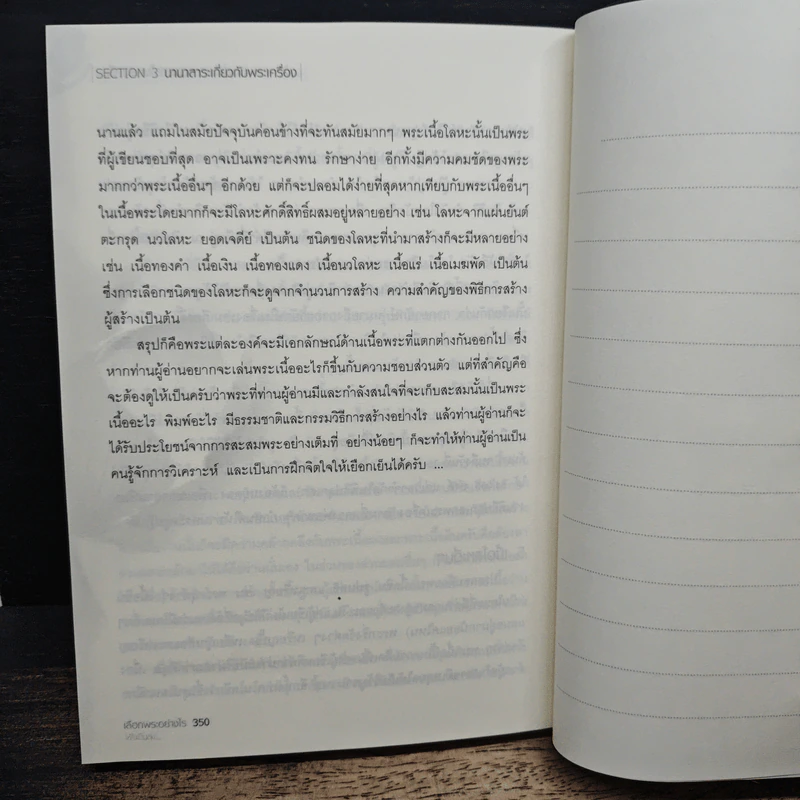 SECTION 3 นานาสาระเกี่ยวกับพระเครื่อง
นานแล้ว แถมในสมัยปัจจุบันค่อนข้างที่จะทันสมัยมากๆ พระเนื้อโลหะนั้นเป็นพระ
ที่ผู้เขียนชอบที่สุด อาจเป็นเพราะคงทน รักษาง่าย อีกทั้งมีความคมชัดของพระ
มากกว่าพระเนื้ออื่นๆ อีกด้วย แต่ก็จะปลอมได้ง่ายที่สุดหากเทียบกับพระเนื้ออื่นๆ
ในเนื้อพระโดยมากก็จะมีโลหะศักดิ์สิทธิ์ผสมอยู่หลายอย่าง เช่น โลหะจากแผ่นยันต์
ตะกรุด นวโลหะ ยอดเจดีย์ เป็นต้น ชนิดของโลหะที่นำมาสร้างก็จะมีหลายอย่าง
เช่น เนื้อทองคำ เนื้อเงิน เนื้อทองแดง เนื้อนวโลหะ เนื้อแร่ เนื้อเมฆพัด เป็นต้น
ซึ่งการเลือกชนิดของโลหะก็จะดูจากจำนวนการสร้าง ความสำคัญของพิธีการสร้าง
ผู้สร้างเป็นต้น
สรุปก็คือพระแต่ละองค์จะมีเอกลักษณ์ด้านเนื้อพระที่แตกต่างกันออกไป ซึ่ง
หากท่านผู้อ่านอยากจะเล่นพระเนื้ออะไรก็ขึ้นกับความชอบส่วนตัว แต่ที่สำคัญคือ
จะต้องดูให้เป็นครับว่าพระที่ท่านผู้อ่านมีและกำลังสนใจที่จะเก็บสะสมนั้นเป็นพระ
เนื้ออะไร พิมพ์อะไร มีธรรมชาติและกรรมวิธีการสร้างอย่างไร แล้วท่านผู้อ่านก็จะ
ได้รับประโยชน์จากการสะสมพระอย่างเต็มที่ อย่างน้อยๆ ก็จะทำให้ท่านผู้อ่านเป็น
คนรู้จักการวิเคราะห์ และเป็นการฝึกจิตใจให้เยือกเย็นได้ครับ ...
เลือกพระอย่างไร 350